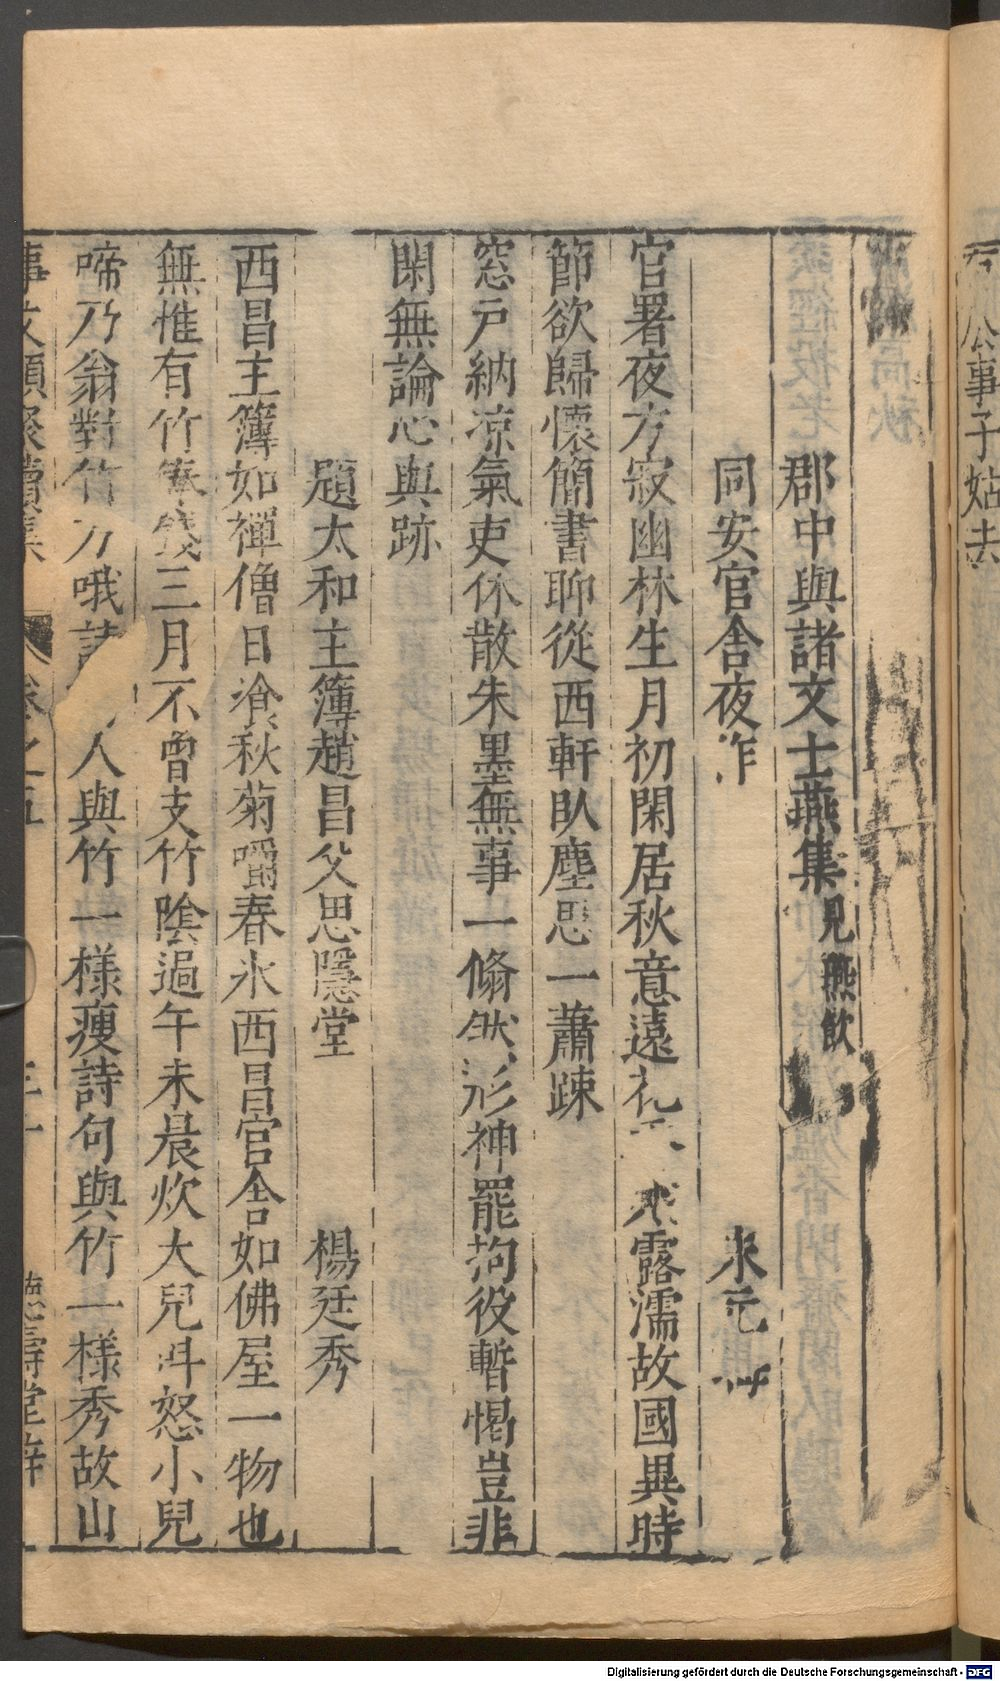 郡中與諸文士燕集見燕飲
同安官舍夜作
官署夜方寂幽林生月初閑居秋意遠 露濡故國異時
節欲歸懷簡書聊從西軒臥塵思一蕭疎
窓戶納凉氣吏休散朱墨無事一翛然形神罷拘役暫愒豈非
閑無論心與跡
題太和主簿趙昌父思隱堂 楊廷秀
西昌主簿如禪僧日湌秋菊嚼春氷西昌官舍如佛屋一物也
無惟有竹 三月不曾支竹陰過午未晨炊大兒叫怒小兒
啼乃翁對竹方哦詩 人與竹一樣瘦詩句與竹一樣秀故山
事文類聚續集 卷之五 德壽堂梓
公事子姑去
Digitalisierung gefördert durch die Deutsche Forschungsgemeinschaft - DFG